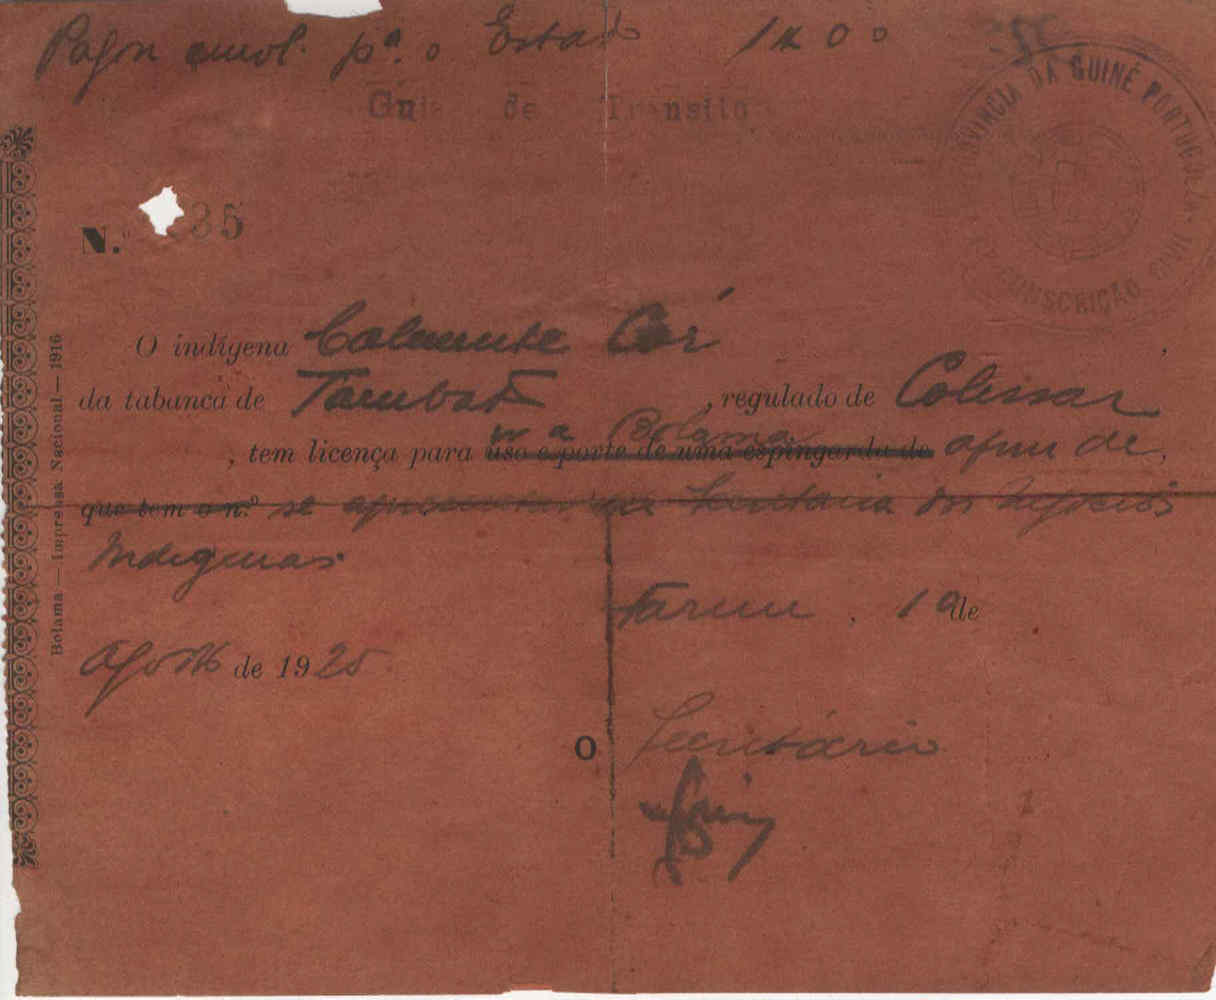 Pagou emol. pª. o Estado 1$00
Guia de Transito
PROVINCIA DA GUINÉ PORTUGUEZA
CIRCUNSCRIÇÃO CIVIL
N.º 35
O indígena Calemute Cór
da tabanca de Tambat, regulado de Colissar
ir a Bolama
, tem licença para uso e porte de uma espingarda de afim de,
que tem o n.º se apresentar na Secretaria dos Negocios
Indigenas
Farim, 10 de
Agosto de 1925
O Secretário
Bolama.—Imprensa Nacional.—1916